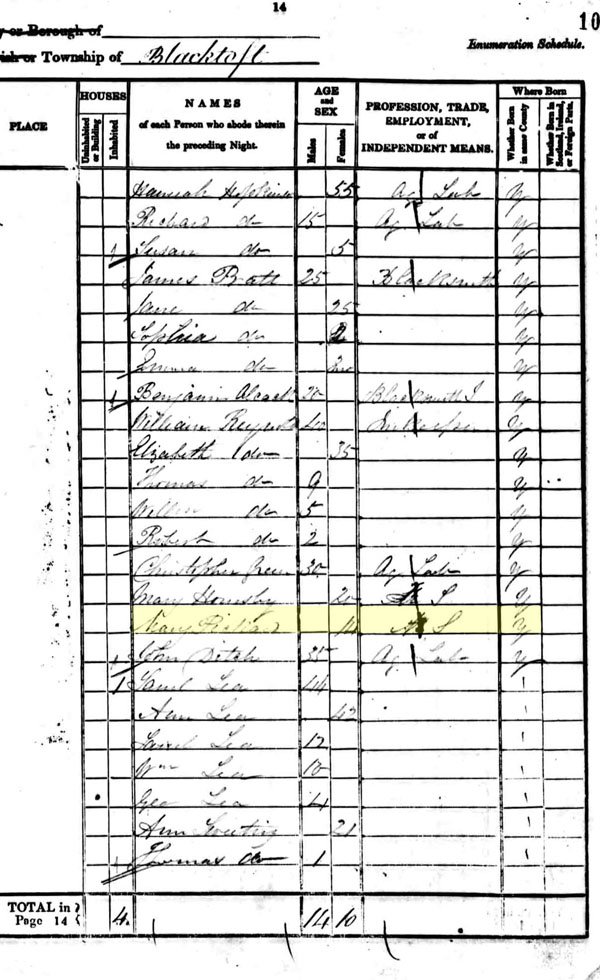 14
10
y or Borough of
Enumeration Schedule.
ish or Township of Blacktoft
PLACE
HOUSES
Uninhabited or Building
Inhabited
NAMES
of each Person who abode therein
the preceding Night.
AGE
and
SEX
Males
Females
PROFESSION, TRADE,
EMPLOYMENT,
or of
INDEPENDENT MEANS.
Where Born
Whether Born in same County
Whether Born in Scotland, Ireland, or Foreign Parts.
Hannah Hopkins 55 Ag Lab y
Richard do 15 Ag Lab y
1 Susan do 5 y
James Bratt 25 Blacksmith y
Jane do 25 y
Sophia do 2 y
Emma do y
1 Benjamin 20 Blacksmith J y
William 40 y
Elizabeth do 35 y
Thomas do 9 y
William do 5 y
Robert do 2 y
Christopher Green 30 Ag Lab y
Mary Hornsby 20 S y
Mary 14 S y
1 John 35 Ag Lab y
1 Saml Lea 44 1
Ann Lea 42 1
Saml Lea 12 1
Wm Lea 10 1
Geo Lea 4 1
Ann 21 1
1 Thomas do 1 1
TOTAL in
Page 14
4 14 10